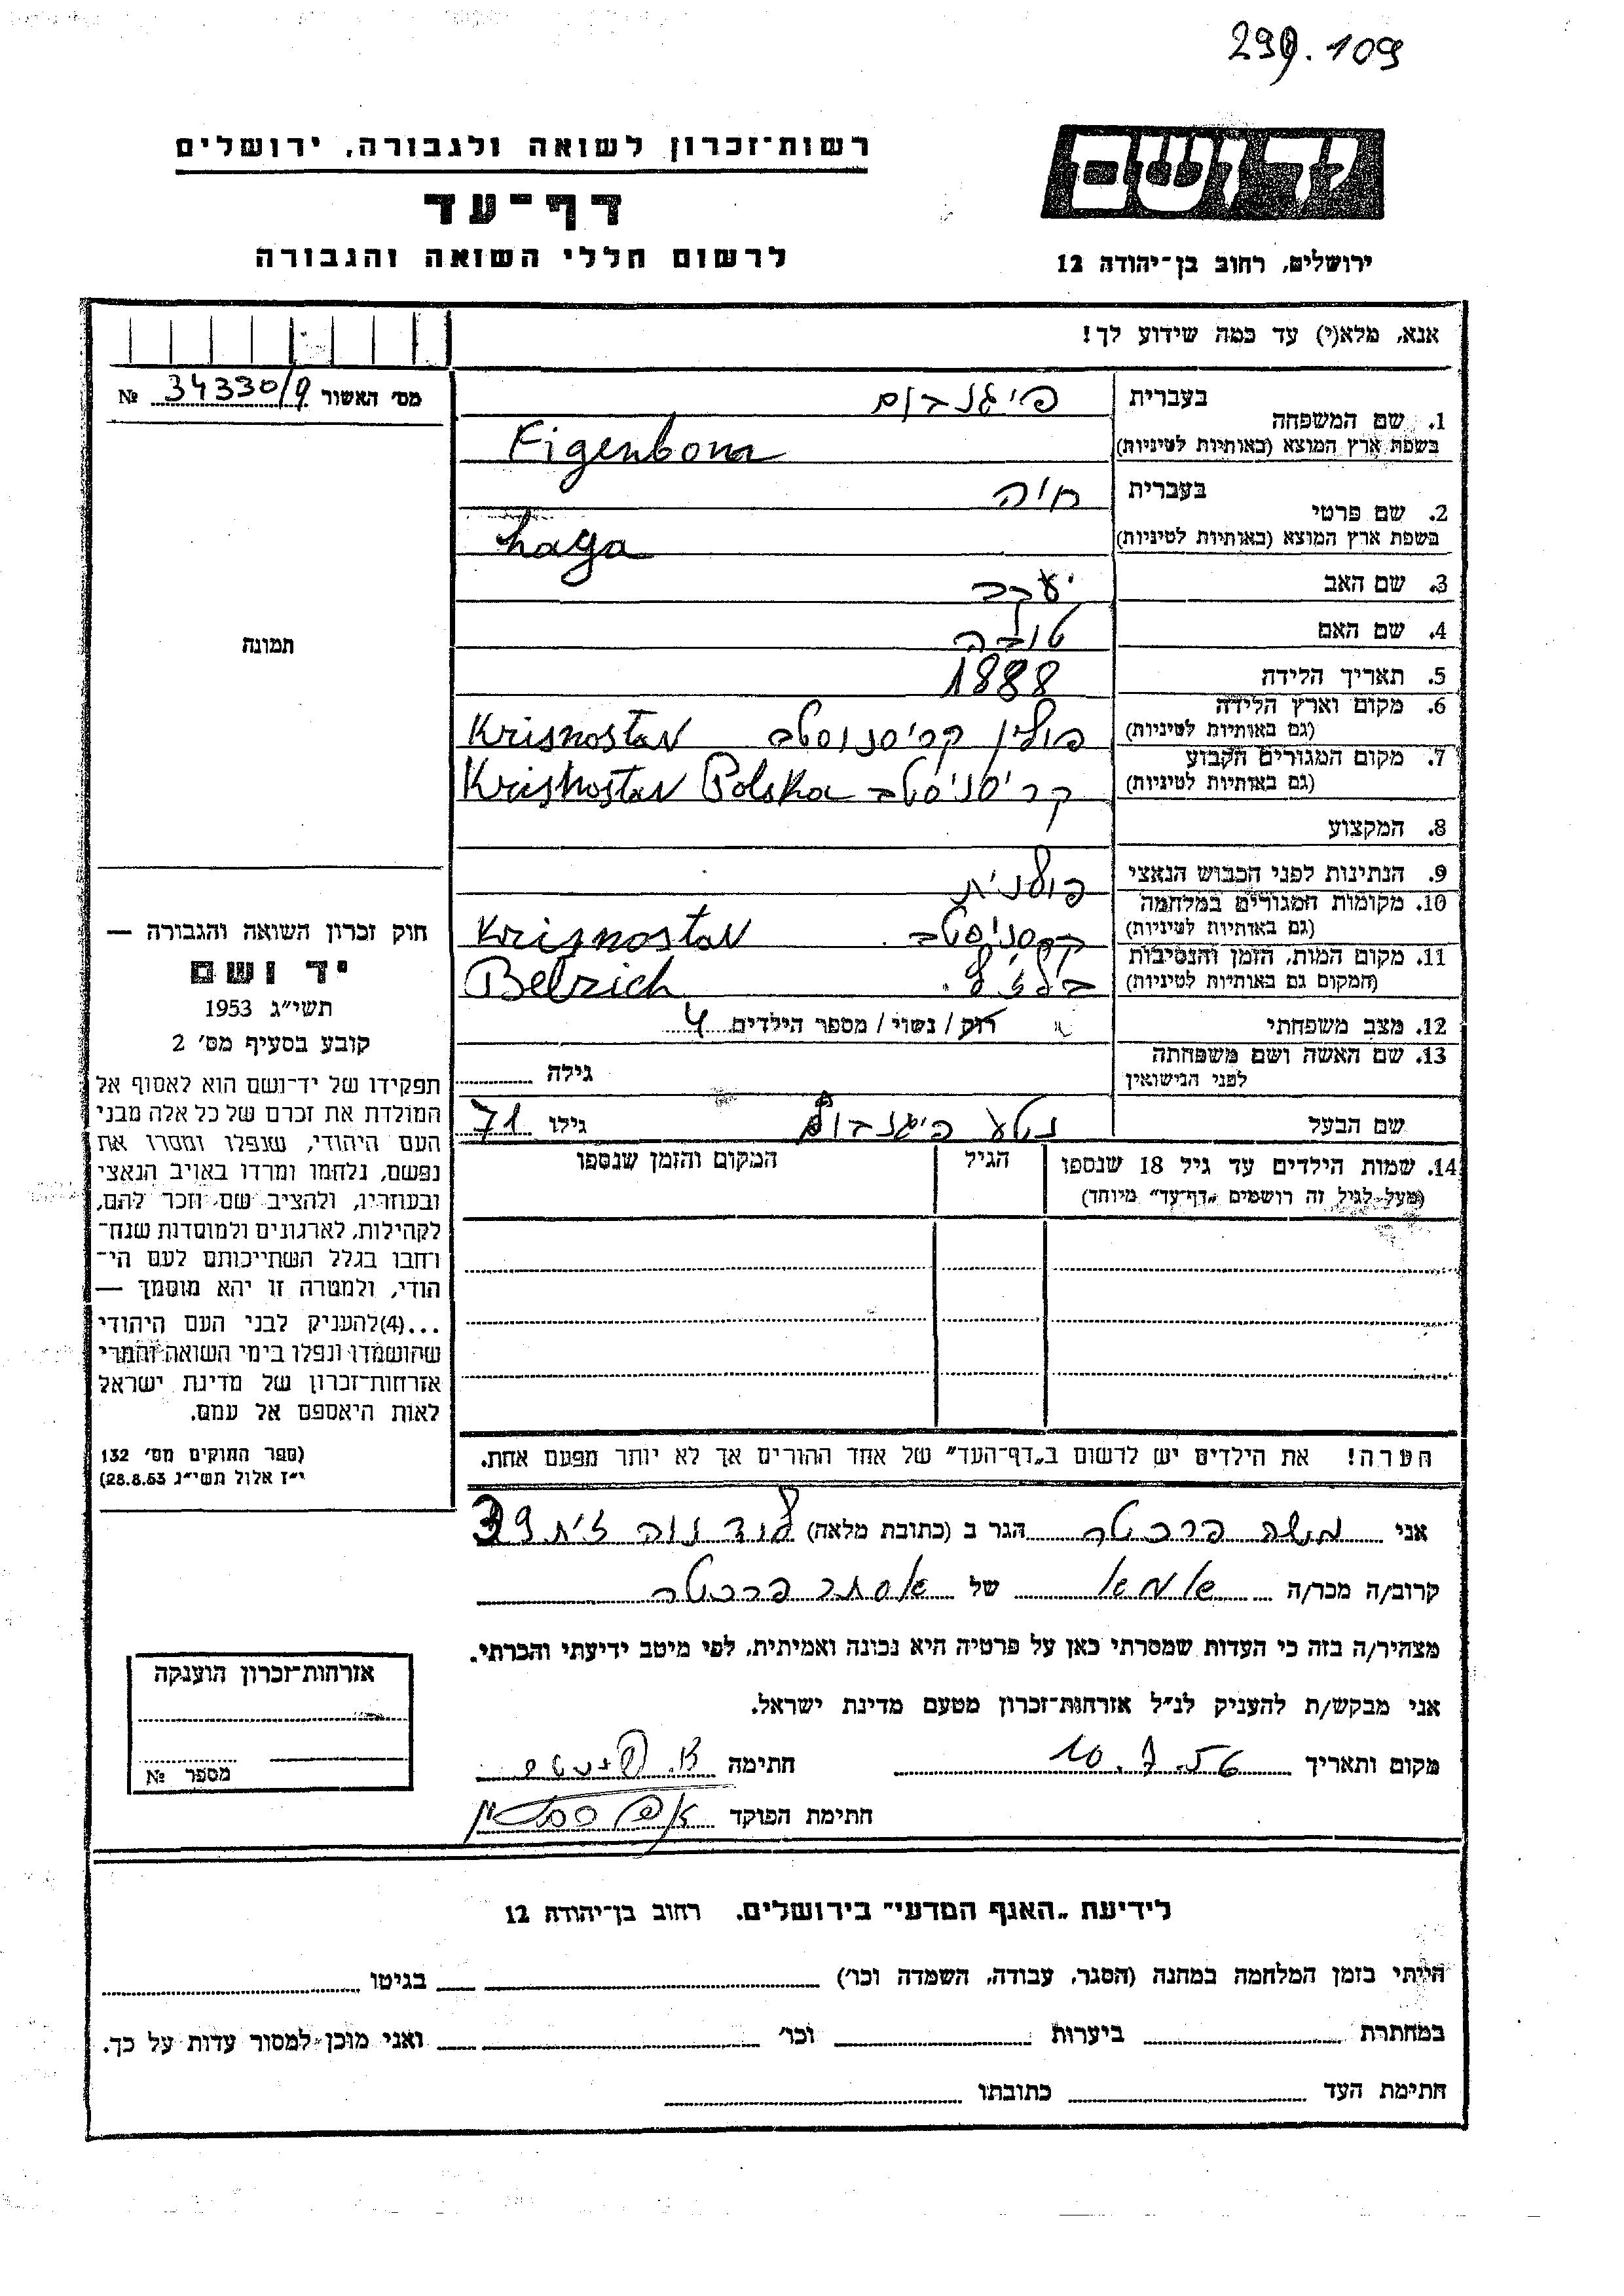 299.109
יד ושם
ירושלים, רחוב בן־יהודה 12
רשות־זכרון לשואה ולגבורה, ירושלים
דף־עד
לרשום חללי השואה והגבורה
אנא, מלא(י) עד כמה שידוע לך!
מס׳ האשור 34330/9 №
1. שם המשפחה
בעברית פיגנבום
בשפת ארץ המוצא (באותיות לטיניות) Figenbom
2. שם פרטי
בעברית חיה
בשפת ארץ המוצא (באותיות לטיניות) haya
3. שם האב יעקב
4. שם האם טובה
5. תאריך הלידה 1888
6. מקום וארץ הלידה
(גם באותיות לטיניות) פולין קריסנוסטב Krisnostav
7. מקום המגורים הקבוע
(גם באותיות לטיניות) קריסניסטב Krisnostav Polska
8. המקצוע
9. הנתינות לפני הכבוש הנאצי פולנית
10. מקומות המגורים במלחמה
(גם באותיות לטיניות) קרסניסטב Krisnostav
11. מקום המות, הזמן והנסיבות
(המקום גם באותיות לטיניות) Belzich
12. מצב משפחתי רוק / נשוי / מספר הילדים 4
13. שם האשה ושם משפחתה
לפני הנישואין
גילה
שם הבעל נטע פיגנבום גילו 71
14. שמות הילדים עד גיל 18 שנספו
(מעל לגיל זה רושמים „דף־עד״ מיוחד)
הגיל
המקום והזמן שנספו
הערה! את הילדים יש לרשום ב„דף־העד״ של אחד ההורים אך לא יותר מפעם אחת.
תמונה
חוק זכרון השואה והגבורה —
יד ושם
תשי״ג 1953
קובע בסעיף מס׳ 2
תפקידו של יד־ושם הוא לאסוף אל
המולדת את זכרם של כל אלה מבני
העם היהודי, שנפלו ומסרו את
נפשם, נלחמו ומרדו באויב הנאצי
ובעוזריו, ולהציב שם וזכר להם,
לקהילות, לארגונים ולמוסדות שנח־
רחבו בגלל השתייכותם לעם הי־
הודי, ולמטרה זו יהא מוסמך —
...(4)להעניק לבני העם היהודי
שהושמדו ונפלו בימי השואה והמרי
אזרחות־זכרון של מדינת ישראל
לאות היאספם אל עמם.
(ספר החוקים מס׳ 132
י״ז אלול תשי״ג 28.8.53)
אני משה פרבטר הגר ב (כתובת מלאה) לוד נוה זית 39
קרוב/ה מכר/ה אמא של אסתר פרבטר
מצהיר/ה בזה כי העדות שמסרתי כאן על פרטיה היא נכונה ואמיתית, לפי מיטב ידיעתי והכרתי.
אני מבקש/ת להעניק לנ״ל אזרחות־זכרון מטעם מדינת ישראל.
מקום ותאריך 10.7.56 חתימה
חתימת הפוקד
אזרחות־זכרון הוענקה
מספר №
לידיעת „האגף המדעי״ בירושלים, רחוב בן־יהודה 12
הייתי בזמן המלחמה במחנה (הסגר, עבודה, השמדה וכו׳) בגיטו
במחתרת ביערות וכו׳ ואני מוכן למסור עדות על כך.
חתימת העד כתובתו